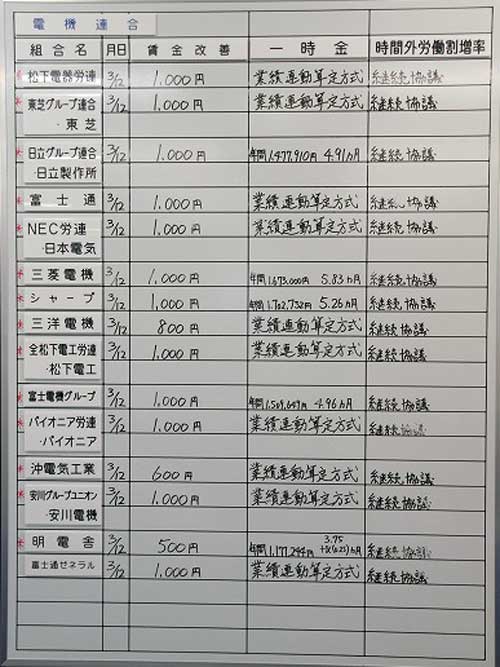 電機連合
組合名 月日 賃金改善 一時金 時間外労働割増率
* 松下電器労連 3/12 1.000円 業績連動算定方式 継続協議
* 東芝グループ連合 3/12 1.000円 業績連動算定方式 継続協議
・東芝
* 日立グループ連合 3/12 1.000円 年間1.477,910円 4.91ヵ月 継続協議
・日立製作所
* 富士通 3/12 1.000円 業績連動算定方式 継続協議
* NEC労連 3/12 1.000円 業績連動算定方式 継続協議
・日本電気
* 三菱電機 3/12 1.000円 年間1.673.000円 5.83ヵ月 継続協議
* シャープ 3/12 1,000円 年間1.702,732円 5.26ヵ月 継続協議
* 三洋電機 3/12 800円 業績連動算定方式 継続協議
* 全松下電工労連 3/12 1.000円 業績連動算定方式 継続協議
・松下電工
* 富士電機グループ 3/12 1.000円 年間 4.96ヵ月 継続協議
* パイオニア労連 3/12 1.000円 業績連動算定方式 継続協議
・パイオニア
* 沖電気工業 3/12 600円 業績連動算定方式 継続協議
* 安川グループユニオン 3/12 1.000円 業績連動算定方式 継続協議
・安川電機
* 明電舎 3/12 500円 年間1.177.244円 3.75 ヵ月 継続協議
富士通ゼネラル 3/12 1.000円 業績連動算定方式 継続協議